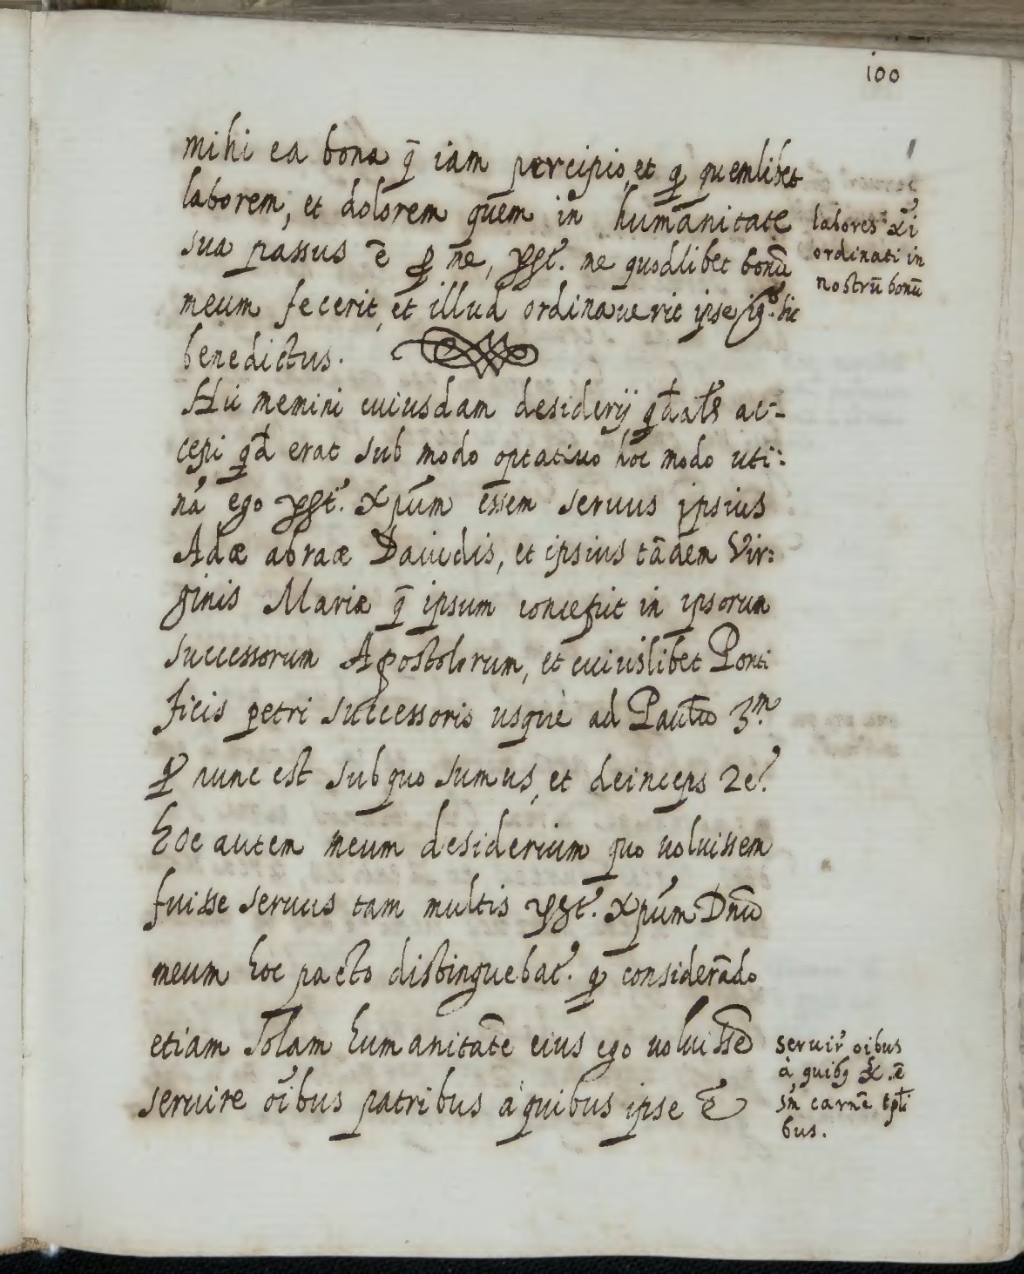 100
mihi ea bona q̄ iam percipio, et ꝑ quemlibet
laborem, et dolorem quem in humanitate
sua passus ē ꝓ me, ne quodlibet bonū
meum fecerit, et illud ordinauerit ipse hic
benedictus.
labores Xi
ordinati in
nostrū bonū
Hic memini cuiusdam desiderij ac-
cepi qd erat sub modo optatiuo hoc modo uti:
nā ego xpūm essem seruus ipsius
Adæ abraæ Dauidis, et ipsius tādem Vir:
ginis Mariæ q̄ ipsum concepit in ipsorum
successorum Apostolorum, et cuiuslibet Ponti
ficis petri successoris usquè ad Paulū 3.m
q nunc est sub quo sumus, et deinceps 2e.
hoc autem meum desiderium quo uoluissem
fuisse seruus tam multis xpūm Dnū
meum hoc pacto distinguebat. q considerādo
etiam solam humanitatē eius ego uoluissē
seruire oībus patribus à quibus ipse ē
seruir oibus
à quibꝫ X. ē
sm carnē
bus.